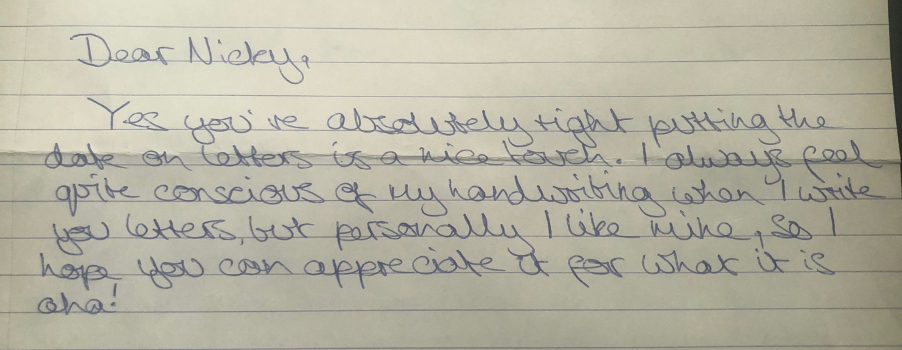 Dear Nicky,
Yes you've absolutely right putting the
date on letters is a nice touch. I always feel
quite conscious of my handwriting when I write
you letters, but personally I like mine, so I
hope you can appreciate it for what it is
aha!